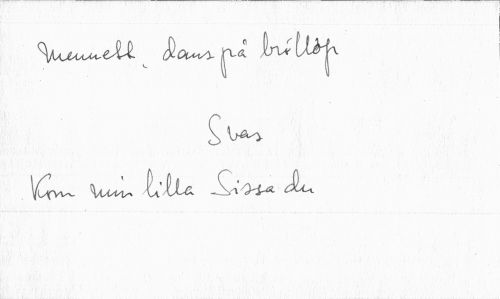 Mennett, dans på bröllop
Svas
Kom min lilla Sissa du